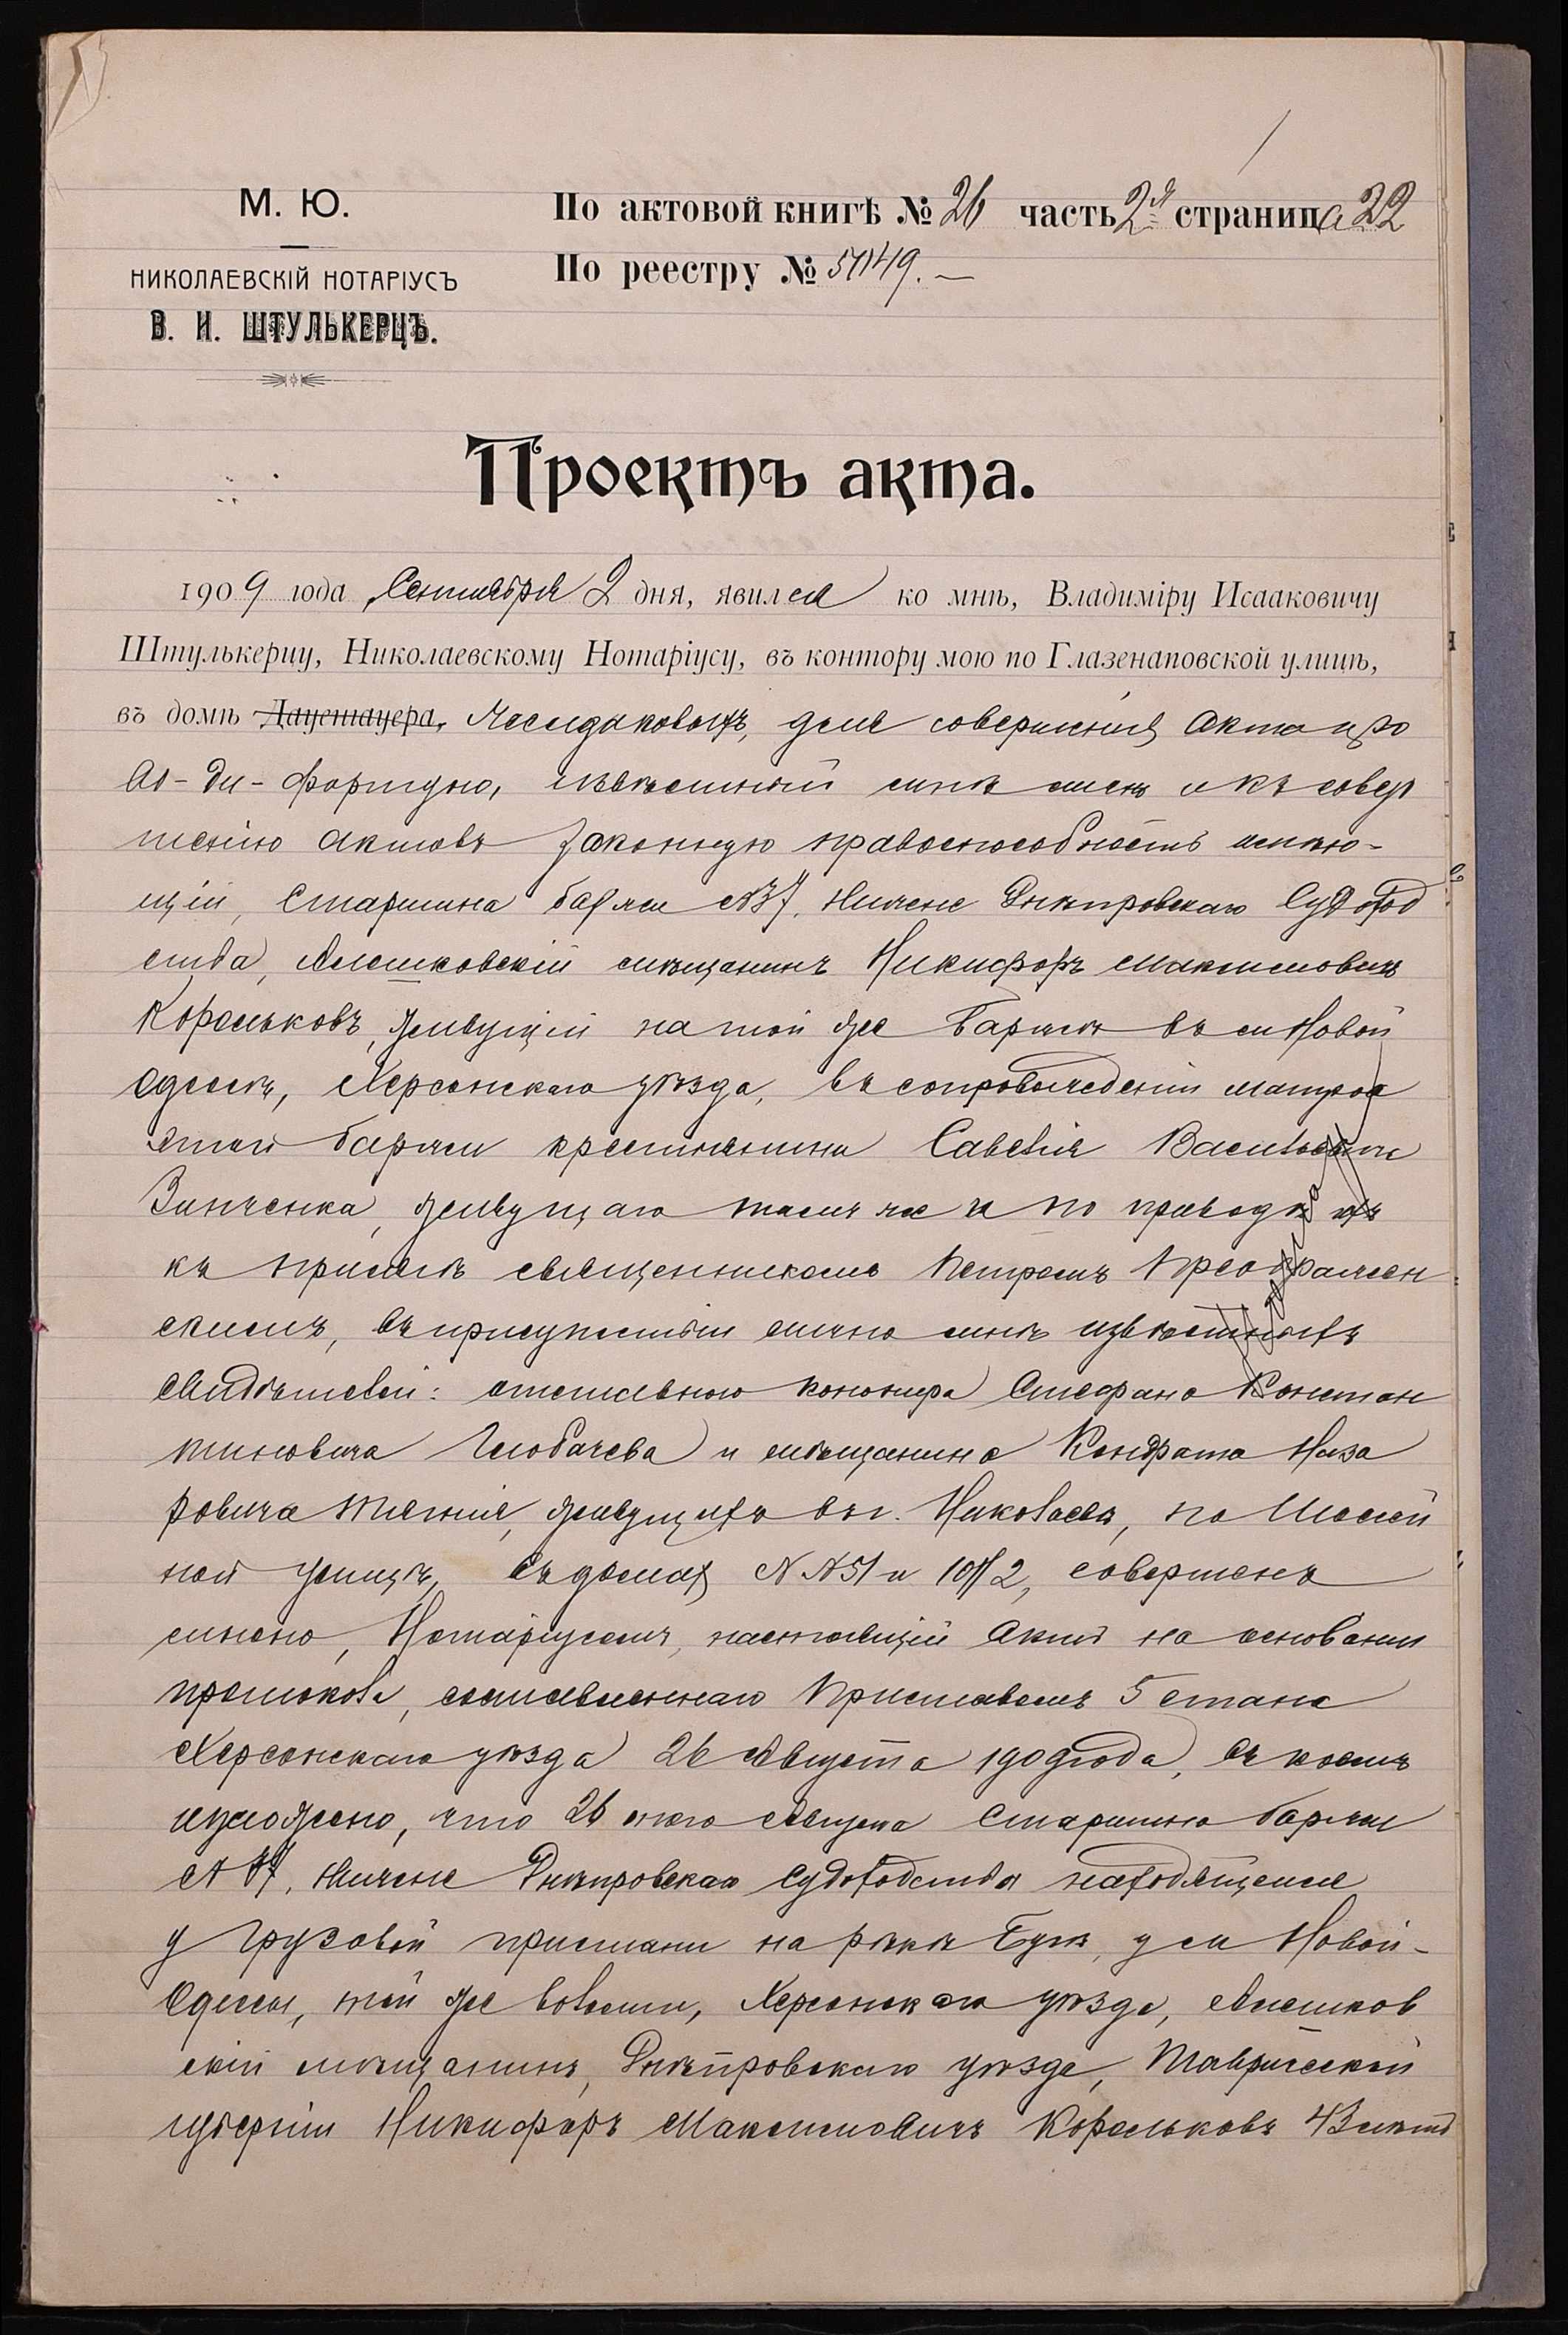 М. Ю.
НИКОЛАЕВСКІЙ НОТАРІУСЪ
В. И. ШТУЛЬКЕРЦЪ.
По актовой книгѣ № 26 часть 2я страница 22
По реестру № 5049.
Проектъ акта.
1909 года Сентября 2 дня, явился ко мнѣ, Владиміру Исааковичу
Штулькерцу, Николаевскому Нотаріусу, въ контору мою по Глазенаповской улицѣ,
въ домѣ для совершенія акта про
фортуно, извѣстный мнѣ лично и къ совер
шенію актовъ законную правоспособность имѣю-
щій, Старшина баржи №37, Нижне Днѣпровскаго Судоход
ства, Алешковскій мѣщанинъ Никифоръ Максимовичъ
Корольковъ, живущій на той же баржѣ въ м Новой
Одессѣ, Херсонскаго уѣзда, въ сопровожденіи матроса
этой баржи крестьянина Савелія Васильевича
Зинченка, живущаго тамъ же и по приводѣ
къ присягѣ священникомъ Петромъ Преображен
скимъ, въ присутствіи лично мнѣ извѣстныхъ
свидѣтелей: отставного канонира Стефана Констан
тиновича Глобачева и мѣщанина Кондрата Наза
ровича живущихъ въ г. Николаевѣ, по
ной улицѣ, въ домахъ совершенъ
мною, Нотаріусомъ, настоящій актъ на основаніи
протокола, составленнаго Приставомъ 5 стана
Херсонскаго уѣзда 26 Августа 1909 года, въ коемъ
изложено, что 26 этого Августа Старшина баржи
№ 37, Нижне Днѣпровскаго Судоходства находящейся
у грузовой пристани на рѣкѣ Бугѣ, у м Новой-
Одессы, той же волости, Херсонскаго уѣзда, Алешков
скій мѣщанинъ, Днѣпровскаго уѣзда, Таврической
губерніи Никифоръ Максимовичъ Корольковъ 43 лѣтъ